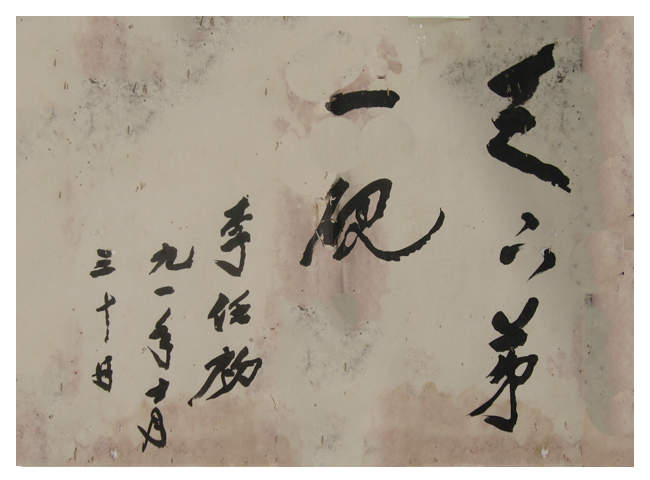 天下第
一砚
李任初
九一年十月
三十日